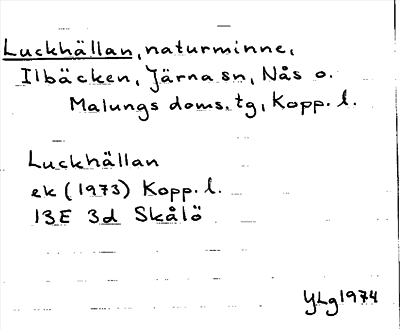 Luckhällan, naturminne,
Ilbäcken, Järna sn, Nås o.
Malungs doms. tg, Kopp. l.
Luckhällan
ek (1973) Kopp. l.
13E 3d Skålö
YLg 1974